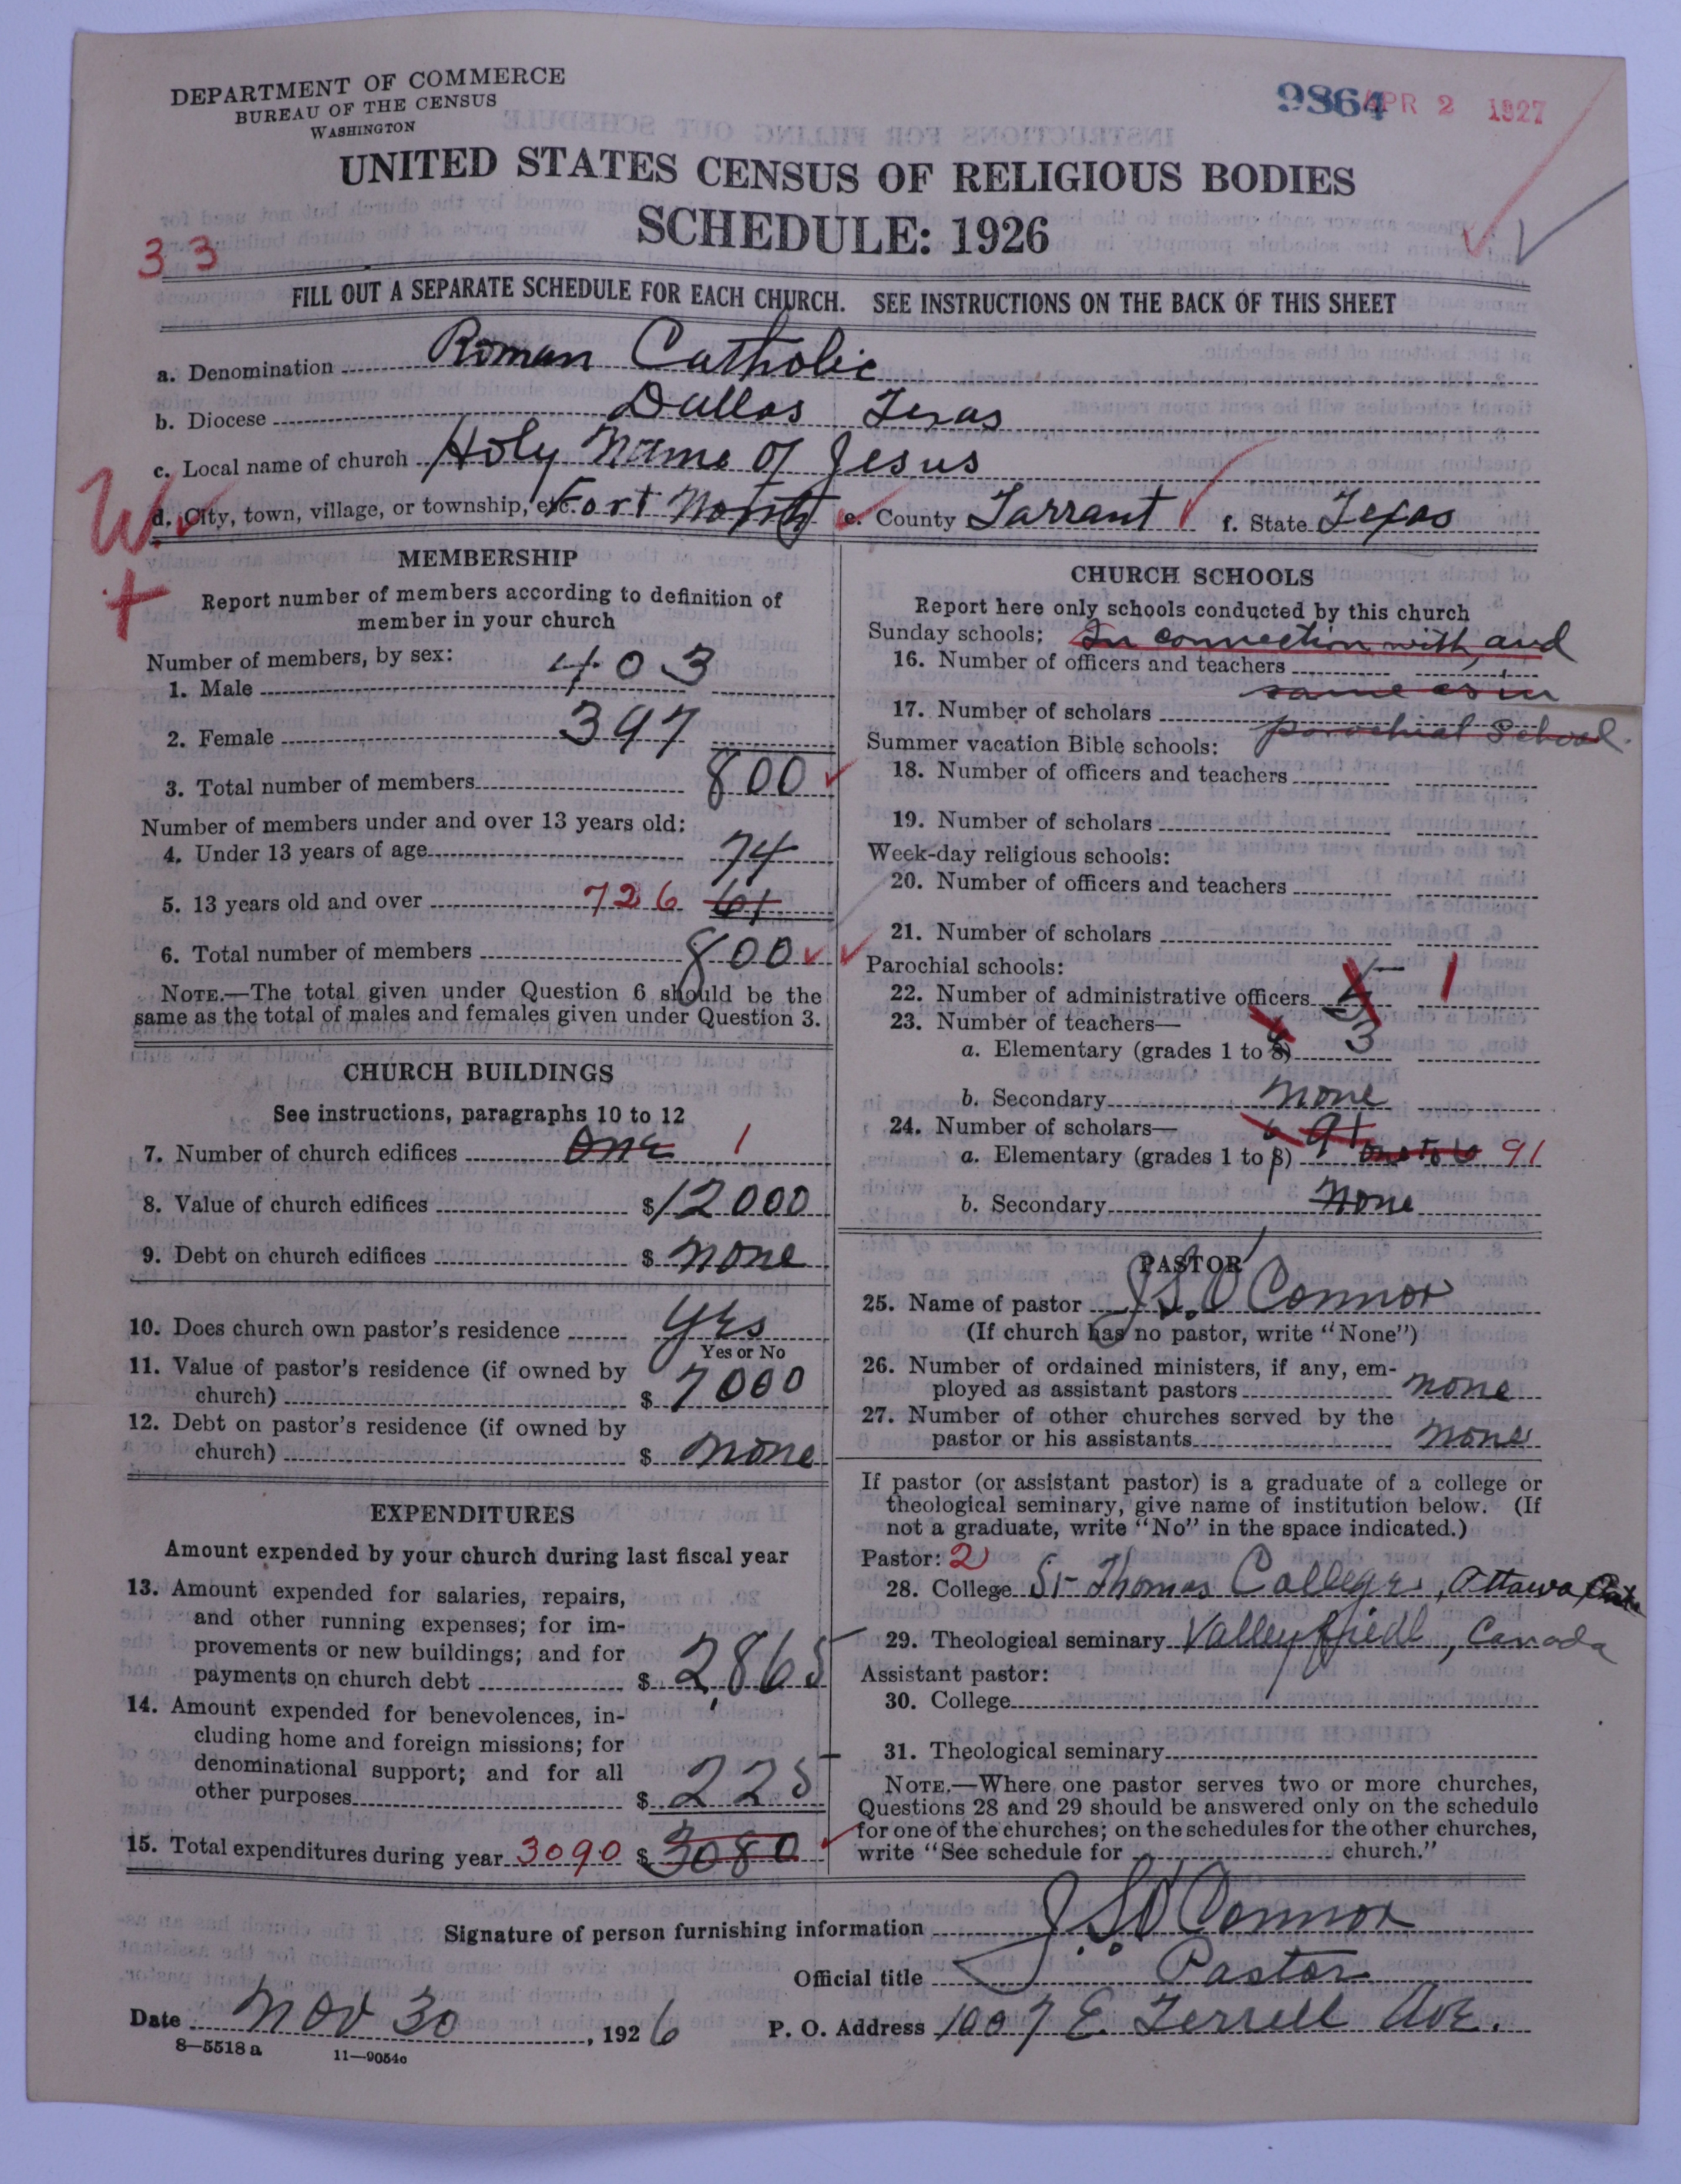 DEPARTMENT OF COMMERCE
BUREAU OF THE CENSUS
WASHINGTON
9864 APR 2 1927
UNITED STATES CENSUS OF RELIGIOUS BODIES
SCHEDULE: 1926
33
FILL OUT A SEPARATE SCHEDULE FOR EACH CHURCH. SEE INSTRUCTIONS ON THE BACK OF THIS SHEET
a. Denomination Roman Catholic
b. Diocese Dallas Texas
c. Local name of church Holy Name Of Jesus
W
d. City, town, village, or township, etc. Fort Worth e. County Tarrant f. State Texas
MEMBERSHIP
Report number of members according to definition of
member in your church
Number of members, by sex:
1. Male 403
2. Female 397
3. Total number of members 800
Number of members under and over 13 years old:
4. Under 13 years of age 74
5. 13 years old and over 726 61
6. Total number of members 800
NOTE.—The total given under Question 6 should be the
same as the total of males and females given under Question 3.
CHURCH BUILDINGS
See instructions, paragraphs 10 to 12
7. Number of church edifices One 1
8. Value of church edifices $12000
9. Debt on church edifices $ none
10. Does church own pastor's residence Yes
Yes or No
11. Value of pastor's residence (if owned by
church) $ 7000
12. Debt on pastor's residence (if owned by
church) $ none
EXPENDITURES
Amount expended by your church during last fiscal year
13. Amount expended for salaries, repairs,
and other running expenses; for im-
provements or new buildings; and for
payments on church debt $ 2,865
14. Amount expended for benevolences, in-
cluding home and foreign missions; for
denominational support; and for all
other purposes $ 225
15. Total expenditures during year 3090 $ 3080
CHURCH SCHOOLS
Report here only schools conducted by this church
Sunday schools: In connection with, and
16. Number of officers and teachers
same as in
17. Number of scholars
Summer vacation Bible schools: parochial School.
18. Number of officers and teachers
19. Number of scholars
Week-day religious schools:
20. Number of officers and teachers
21. Number of scholars
Parochial schools:
22. Number of administrative officers 1
23. Number of teachers—
a. Elementary (grades 1 to 8) 3
b. Secondary none
24. Number of scholars— 6 91
a. Elementary (grades 1 to 8) one to 6 91
b. Secondary none
PASTOR
25. Name of pastor J. S. O'Connor
(If church has no pastor, write "None")
26. Number of ordained ministers, if any, em-
ployed as assistant pastors none
27. Number of other churches served by the
pastor or his assistants none
If pastor (or assistant pastor) is a graduate of a college or
theological seminary, give name of institution below. (If
not a graduate, write "No" in the space indicated.)
Pastor: 2
28. College St Thomas College, Ottawa
29. Theological seminary Valleyfield, Canada
Assistant pastor:
30. College
31. Theological seminary
NOTE.—Where one pastor serves two or more churches,
Questions 28 and 29 should be answered only on the schedule
for one of the churches; on the schedules for the other churches,
write "See schedule for church."
Signature of person furnishing information J. S. O'Connor
Official title Pastor
Date Nov 30, 1926 P. O. Address 1007 E. Terrell Ave.
8—5518 a 11—9054c